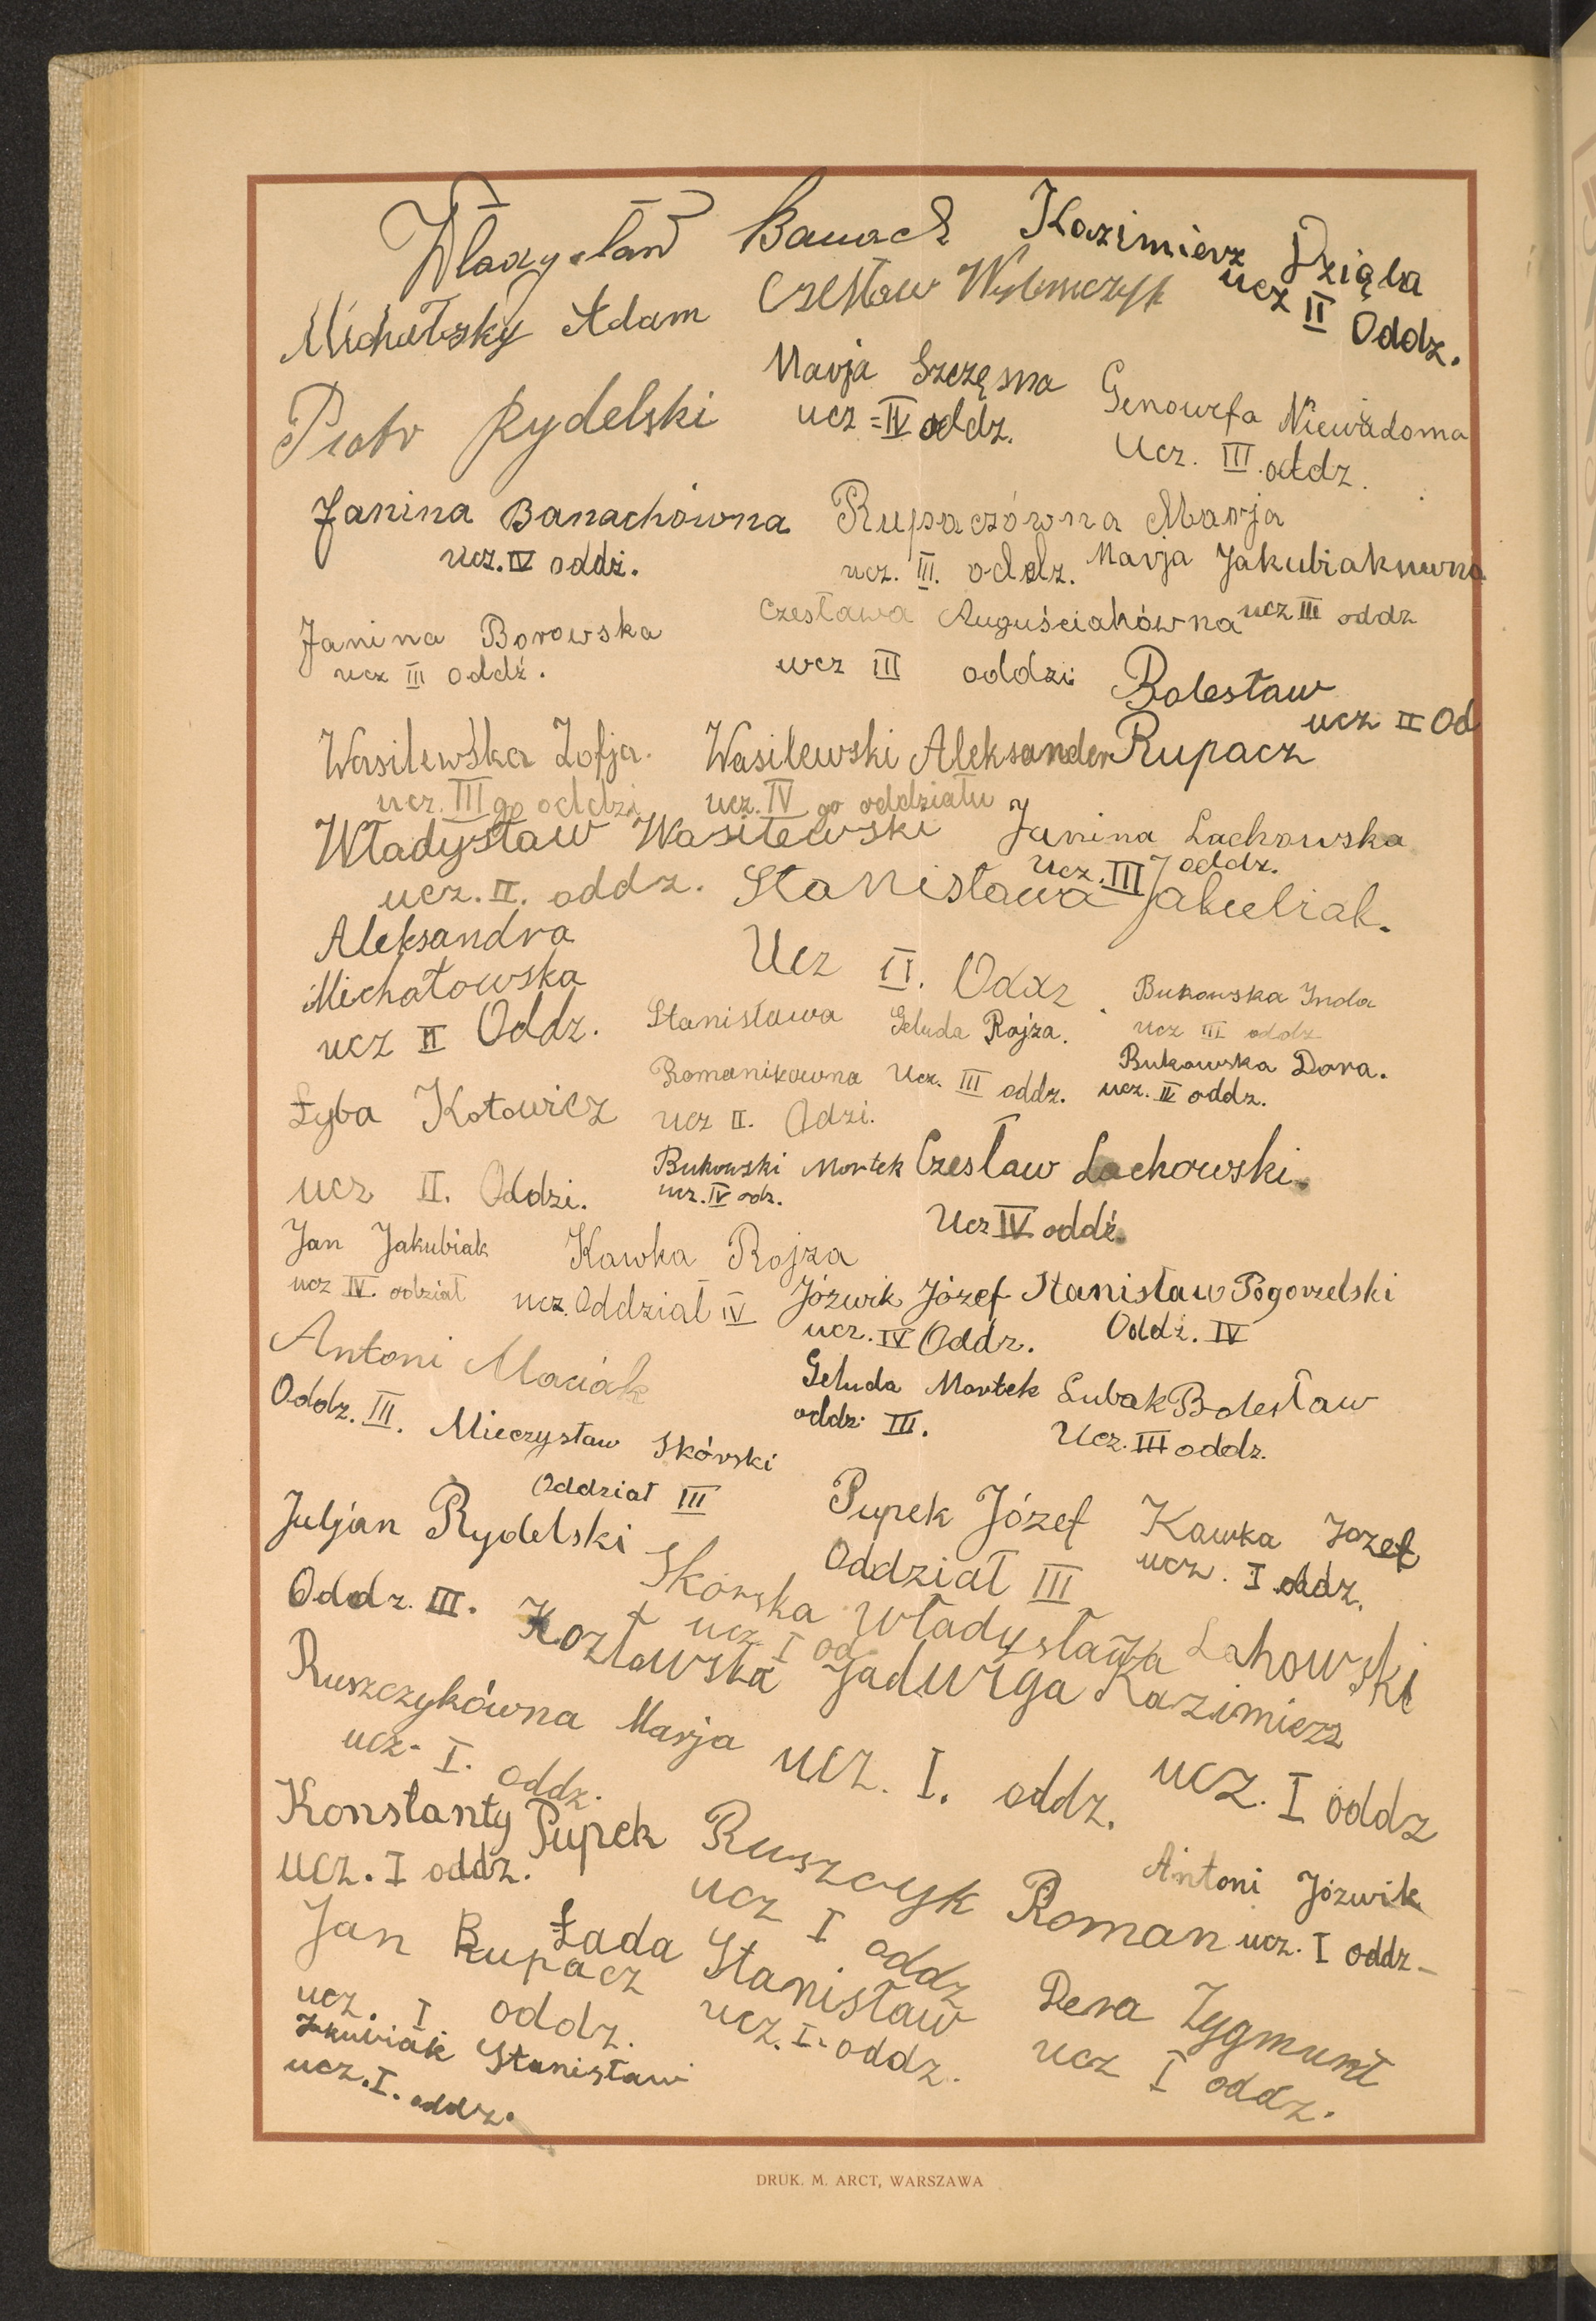 Władysław Banach Kazimierz Dzięba
ucz II Oddz.
Michałsky Adam Czesław
Piotr Rydelski
Marja Szczęsna
ucz = IV oddz.
Genowefa Niewiadoma
Ucz. III. oddz.
Janina Banachówna
ucz. IV oddz.
Rupaczówna Marja
ucz. III. oddz.
Marja Jakubiakuwna
ucz III oddz
Janina Borowska
ucz III oddź.
Czesława Auguściakówna
ucz III oddzi
Bolesław
Rupacz
ucz II Od
Wasilewska Zofja.
ucz. III go oddzi
Wasilewski Aleksander
ucz. IV go oddziału
Władysław Wasilewski
ucz. II. oddz.
Janina Lachowska
Ucz. III oddz.
Stanisława Jakubiak.
Ucz II. Oddz.
Aleksandra
Michałowska
ucz II Oddz.
Stanisława
Romanikowna
ucz II. Odzi.
Geluda Rojza.
Ucz. III oddz.
Bukowska Inda
ucz III oddz
Bukowska Dora.
ucz. II oddz.
Łyba Kotowicz
ucz II. Oddzi.
Bukowski Mortek
ucz. IV odz.
Czesław Lachowski.
Ucz IV oddź.
Jan Jakubiak
ucz IV. odział
Kawka Rojza
ucz. Oddział IV
Józwik Józef
ucz. IV Oddz.
Stanisław Pogorzelski
Oddz. IV
Antoni Maciak
Oddz. III.
Geluda Mortek
oddz. III.
Lubak Bolesław
Ucz. III oddz.
Mieczysław Skórski
Oddział III
Juljan Rydelski
Oddz. III.
Pupek Józef
Oddział III
Kawka Jozef
ucz. I oddz.
Skórska Władysława
ucz. I od
Lahowski
Kazimierz
ucz. I oddz
Kozławska Jadwiga
ucz. I. oddz.
Ruszczykówna Marja
ucz. I. oddz.
Konstanty Pupek
ucz. I oddz.
Ruszczyk Roman
ucz I oddz
Antoni Józwik
ucz. I oddz.
Jan Rupacz
ucz. I oddz.
Łada Stanisław
ucz. I. oddz.
Dera Zygmunt
ucz I oddz.
Jakubiak Stanisław
ucz. I. oddz.
DRUK. M. ARCT, WARSZAWA